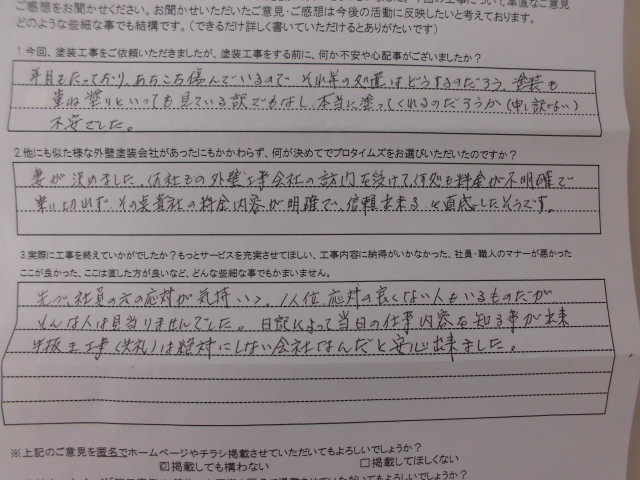 ご感想をお聞かせください。お聞かせいただいたご意見・ご感想は今後の活動に反映したいと考えております。
どのような些細な事でも結構です。（できるだけ詳しく書いていただけるとありがたいです）
1.今回、塗装工事をご依頼いただきましたが、塗装工事をする前に、何か不安や心配事がございましたか？
年月もたっており、あちこち傷んでいるので それ等の処置はどうするのだろう、塗装も
重ね塗りといっても見ている訳でもなし、本当に塗ってくれるのだろうか（申し訳ない）
不安でした。
2.他にも似た様な外壁塗装会社があったにもかかわらず、何が決めてでプロタイムズをお選びいただいたのですか？
妻が決めました。何社もの外壁工事会社の訪問を受けて、何処も料金が不明確で
その点貴社の料金内容が明確で、信頼出来る と直感したそうです。
3.実際に工事を終えていかがでしたか？もっとサービスを充実させてほしい、工事内容に納得がいかなかった、社員・職人のマナーが悪かった
ここが良かった、ここは直した方が良いなど、どんな些細な事でもかまいません。
先づ、社員の方の応対が気持いい、1人位、応対の良くない人もいるものだが
そんな人は見当りませんでした。日記によって当日の仕事内容を知る事が出来
手抜き工事（失礼）は絶対にしない会社なんだと安心出来ました。
※上記のご意見を匿名でホームページやチラシ掲載させていただいてもよろしいでしょうか？
☑掲載しても構わない □掲載してほしくない